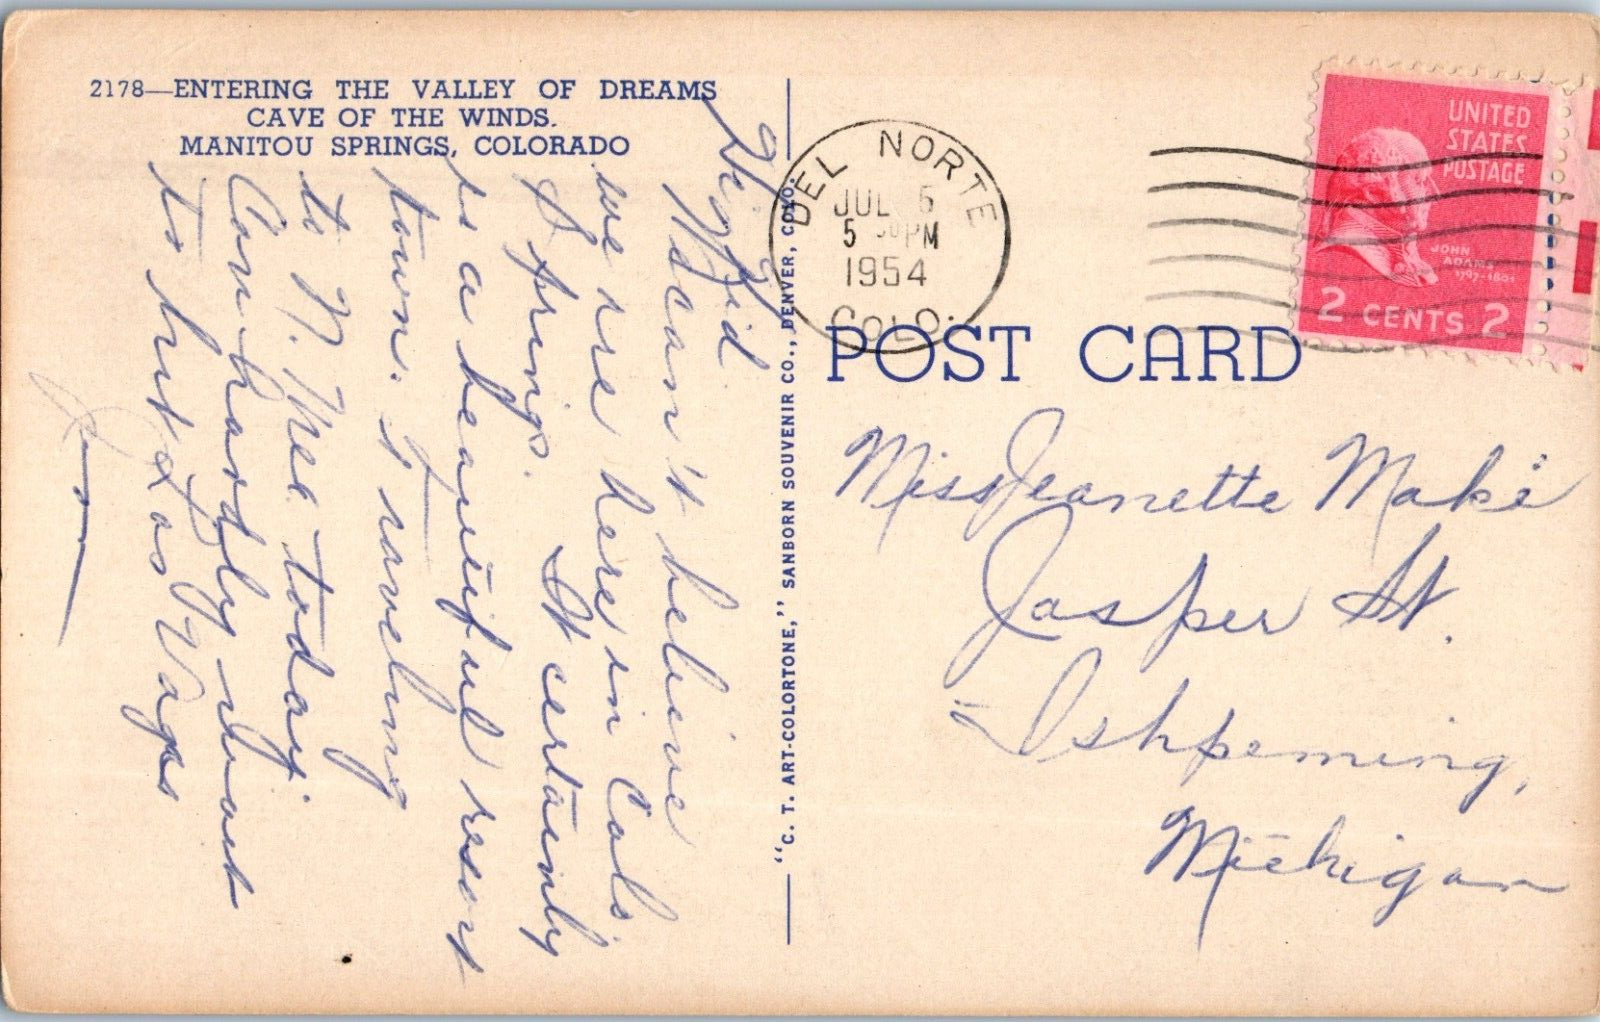 2178—ENTERING THE VALLEY OF DREAMS
CAVE OF THE WINDS.
MANITOU SPRINGS, COLORADO
Hi Kid
I can't believe
we are here in Colo.
Spring. It certainly
is a beautiful resort
town. Traveling
to N. Mex today
Can hardly wait
to hit Las Vagas
"C. T. ART-COLORTONE," SANBORN SOUVENIR CO., DENVER, COLO.
DEL NORTE
JUL 6
5 30 PM
1954
COLO.
UNITED
STATES
POSTAGE
JOHN
ADAMS
1797-1801
2 CENTS 2
POST CARD
Miss Jeanette Maki
Jasper St.
Ishpeming,
Michigan